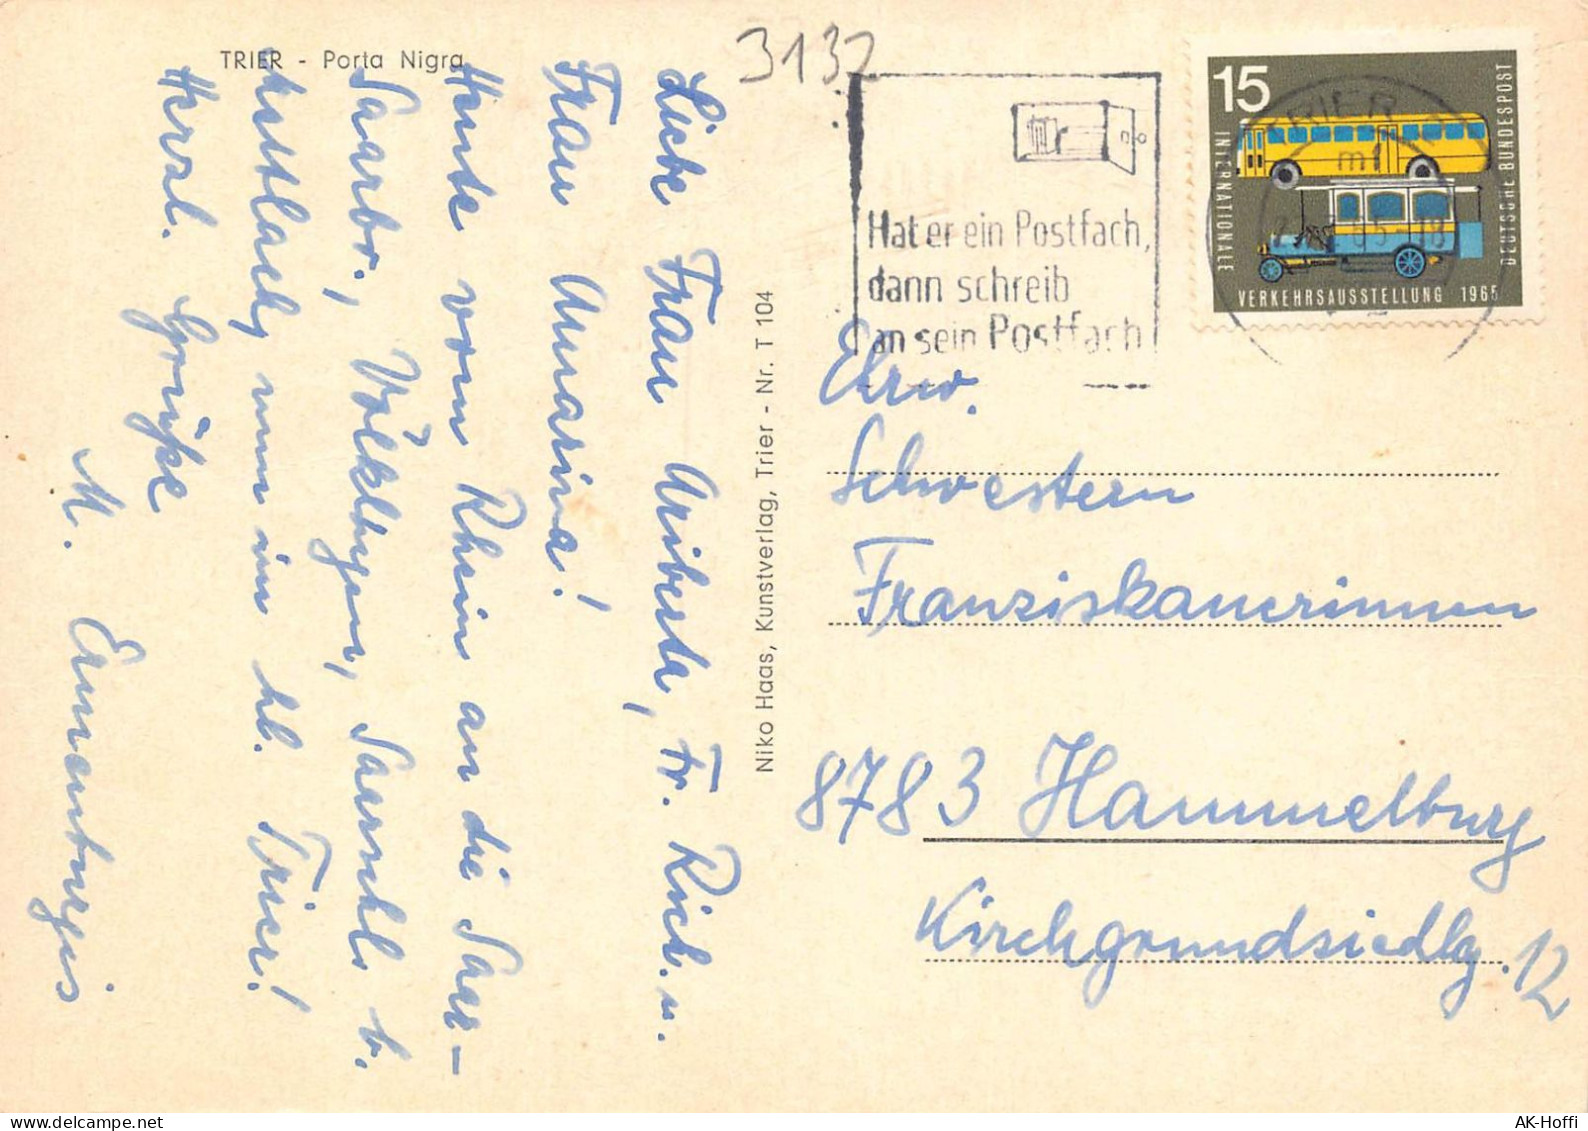 TRIER - Porta Nigra
3132
Liebe Frau Ariberta, Fr. Rich. u.
Frau Annarina!
Heute vom Rhein an die Saar-
Saarbr., Völklingen, b.
nun im hl. Trier!
Herzl. Grüße
M.
Niko Haas, Kunstverlag, Trier - Nr. T 104
Hat er ein Postfach,
dann schreib
an sein Postfach
15
INTERNATIONALE
VERKEHRSAUSSTELLUNG 1965
DEUTSCHE BUNDESPOST
TRIER
Ehrw.
Schwestern
Franziskanerinnen
8783 Hammelburg
Kirchgrundsiedlg. 12
AK-Hoffi